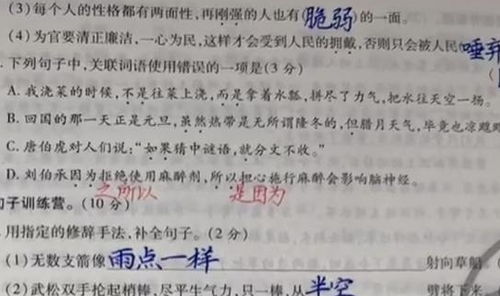 (3)每个人的性格都有两面性,再刚强的人也有(脆弱)的一面。
(4)为官要清正廉洁,一心为民,这样才会受到人民的拥戴,否则只会被人民(唾弃
下列句子中,关联词语使用错误的一项是(3分)
A. 我浇菜的时候,不是往菜上浇,而是拿着水瓢,拼尽了力气,把水往天空一扬。
B. 回国的那一天正是元旦,虽然热带是无所谓隆冬的,但腊月天气,毕竟也凉飕飕
C. 唐伯虎对人们说:“如果猜中谜语,就分文不收。”
D. 刘伯承因为拒绝使用麻醉剂,所以担心施行麻醉会影响脑神经。
之所以 是因为
句子训练营。(10分)
用指定的修辞手法,补全句子。(2分)
(1)无数支箭像雨点一样 射向草船
(2)武松双手抡起梢棒,尽平生气力,只一棒,从半空 劈将下来